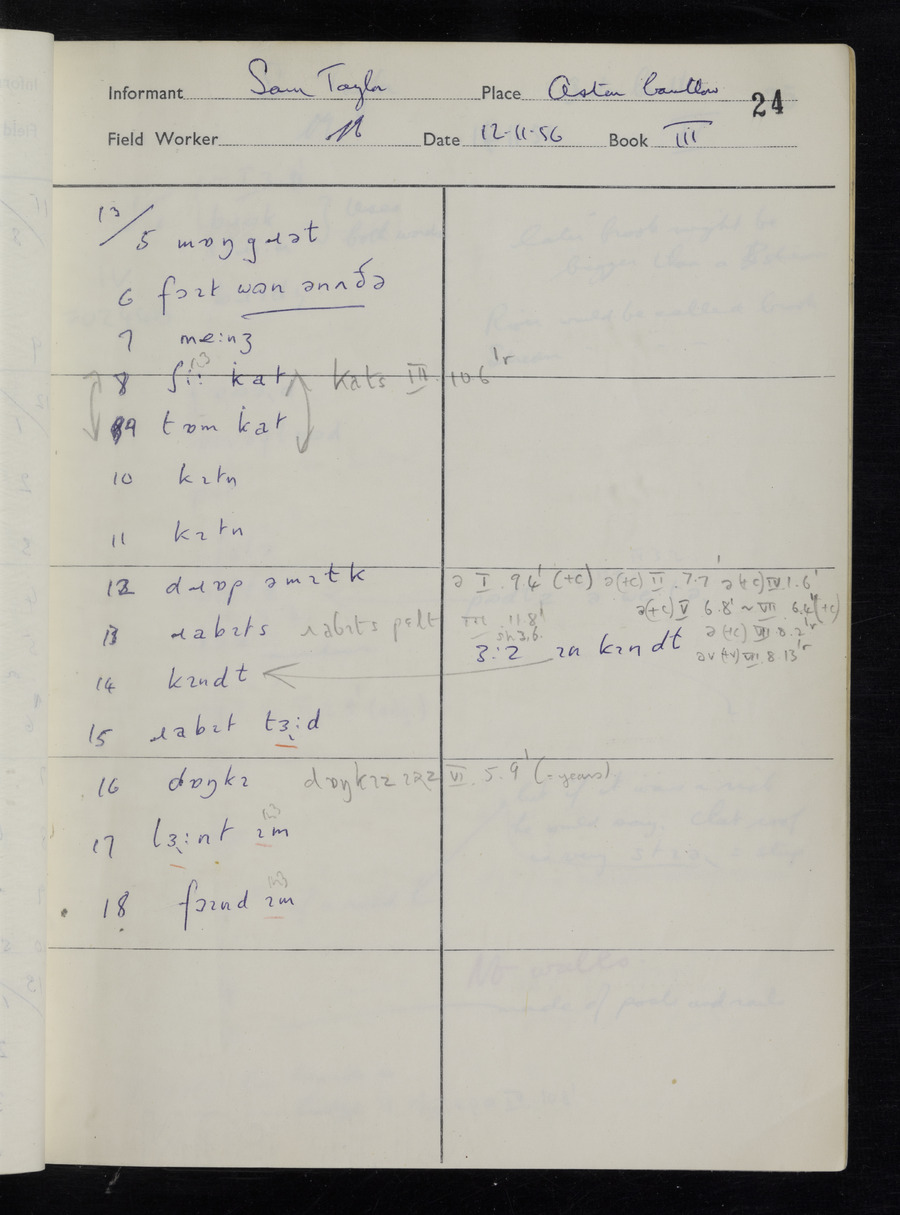 Informant Sam Taylor Place Aston Cantlow 24
Field Worker Date 12-11-56 Book III
13/
5 mɒŋgɹət
6 fəɪt wɒn ənʌðə
7 meːnʒ
8 ʃiː kat kats III 10 6'r
9 tɒm kat
10 kɪtn
11 kɪtn
12 dɹɒp əmɪtk ə I 9.4' (+c) ə(+c) II 7.7' ə(+c) IV 1.6'
ə(+c) V 6.8' ~ VII 6.4'(+c)
13 ɹabɪts ɹabɪts pelt III 11.8' ə(+c) VII 8.2'r
sh 3.6.
3:2 ɪn kɪndt əv (+v) VIII 8.13'r
14 kɪndt
15 ɹabɪt tɜːd
16 dɒŋkɪ dɒŋkɪz VI 5.9' (= years)
17 lɜːnt ɪm
18 fəɪnd ɪm